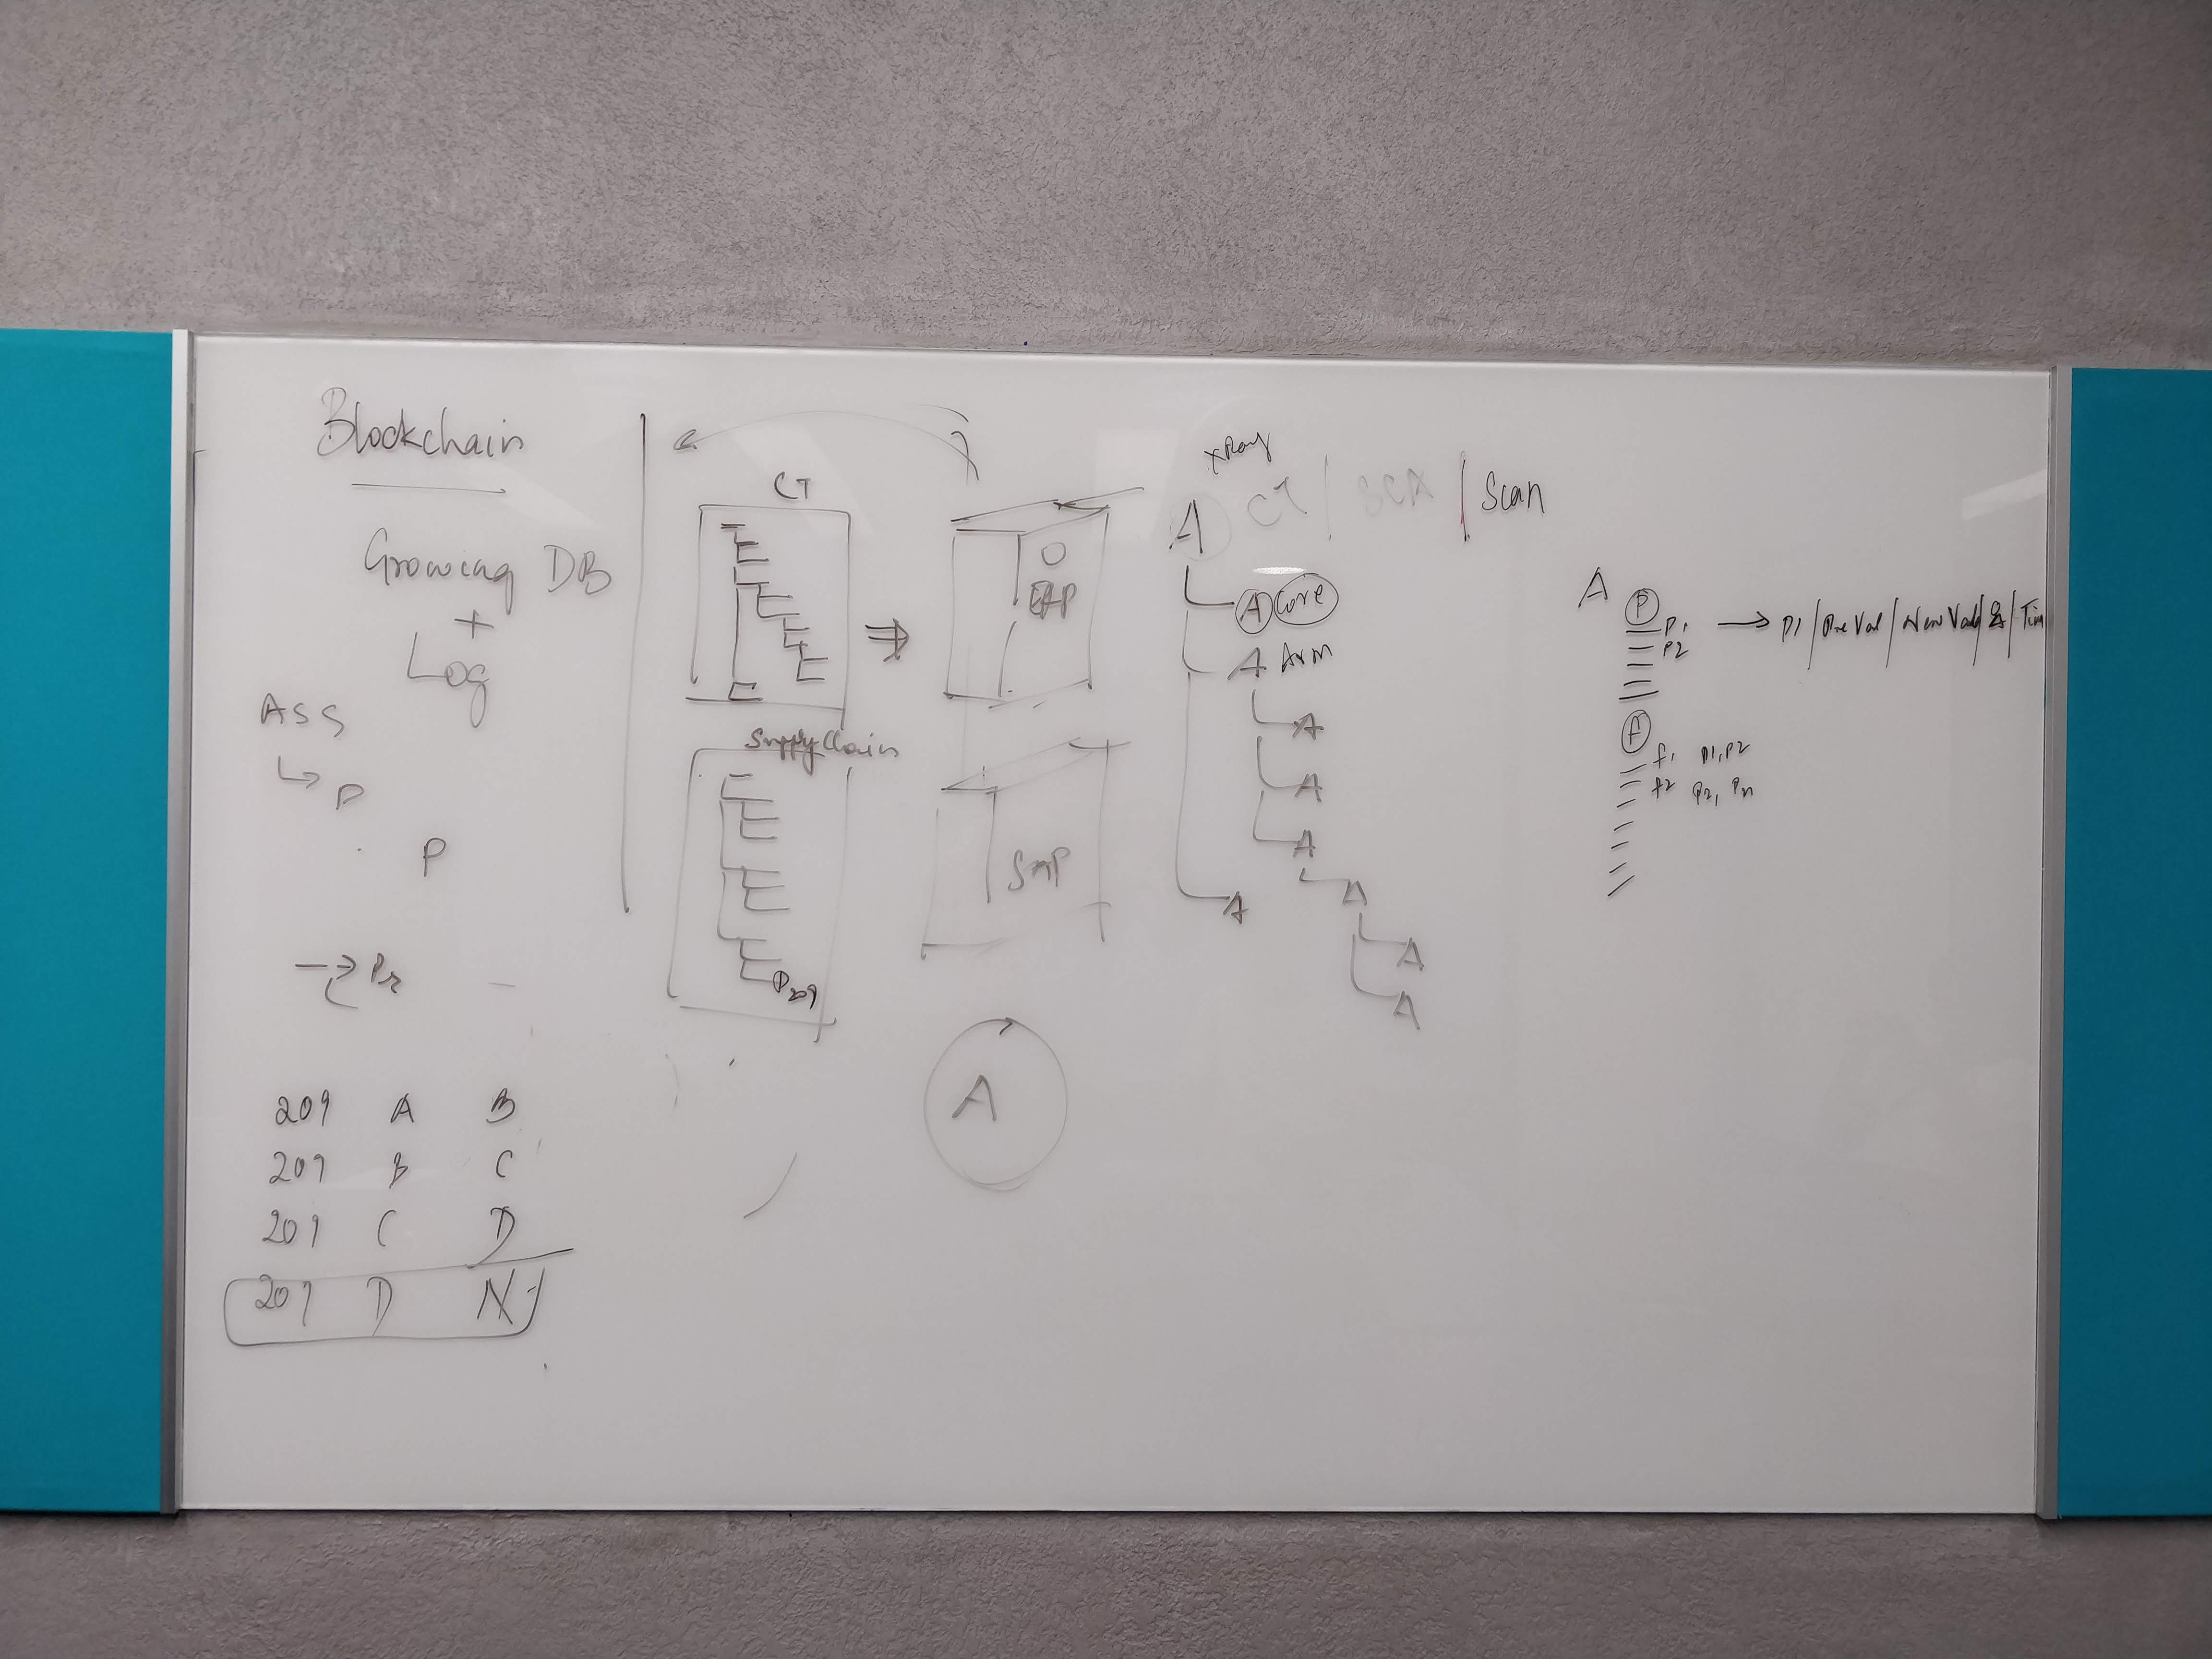 Blockchain
Growing DB
+
Log
ASS
P
P
209 A B
209 B C
209 C D
209 D N
CT
Supply Chain
P209
SAP
A
XRay
A CT / SCA / Scan
A Core
A Arm
A
A
A
A
A
A
A
A
P
P1 → P1 / Pre Val / New Val / & / Tim
P2
F
f1 P1, P2
f2 P2, Pn